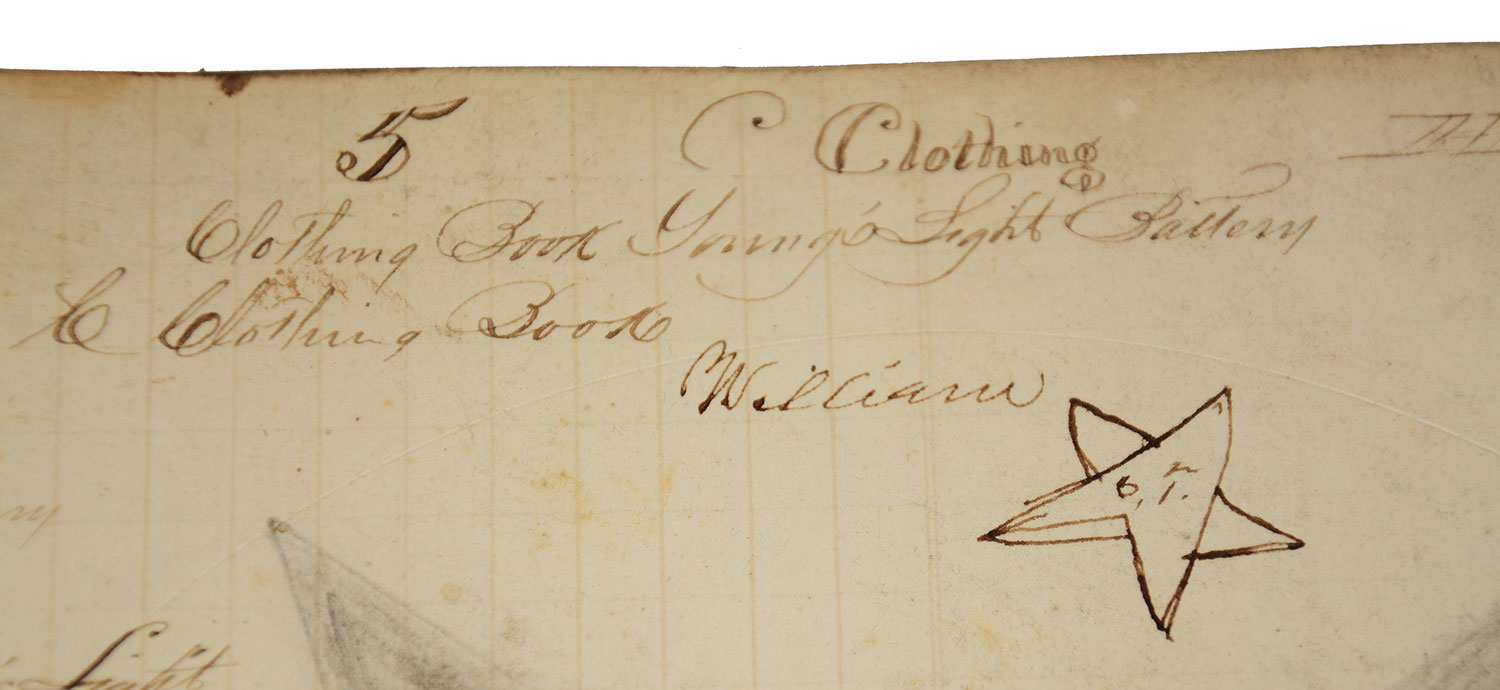 5 C Clothing
Clothing Book Young's Light Battery
C Clothing Book
William
Light